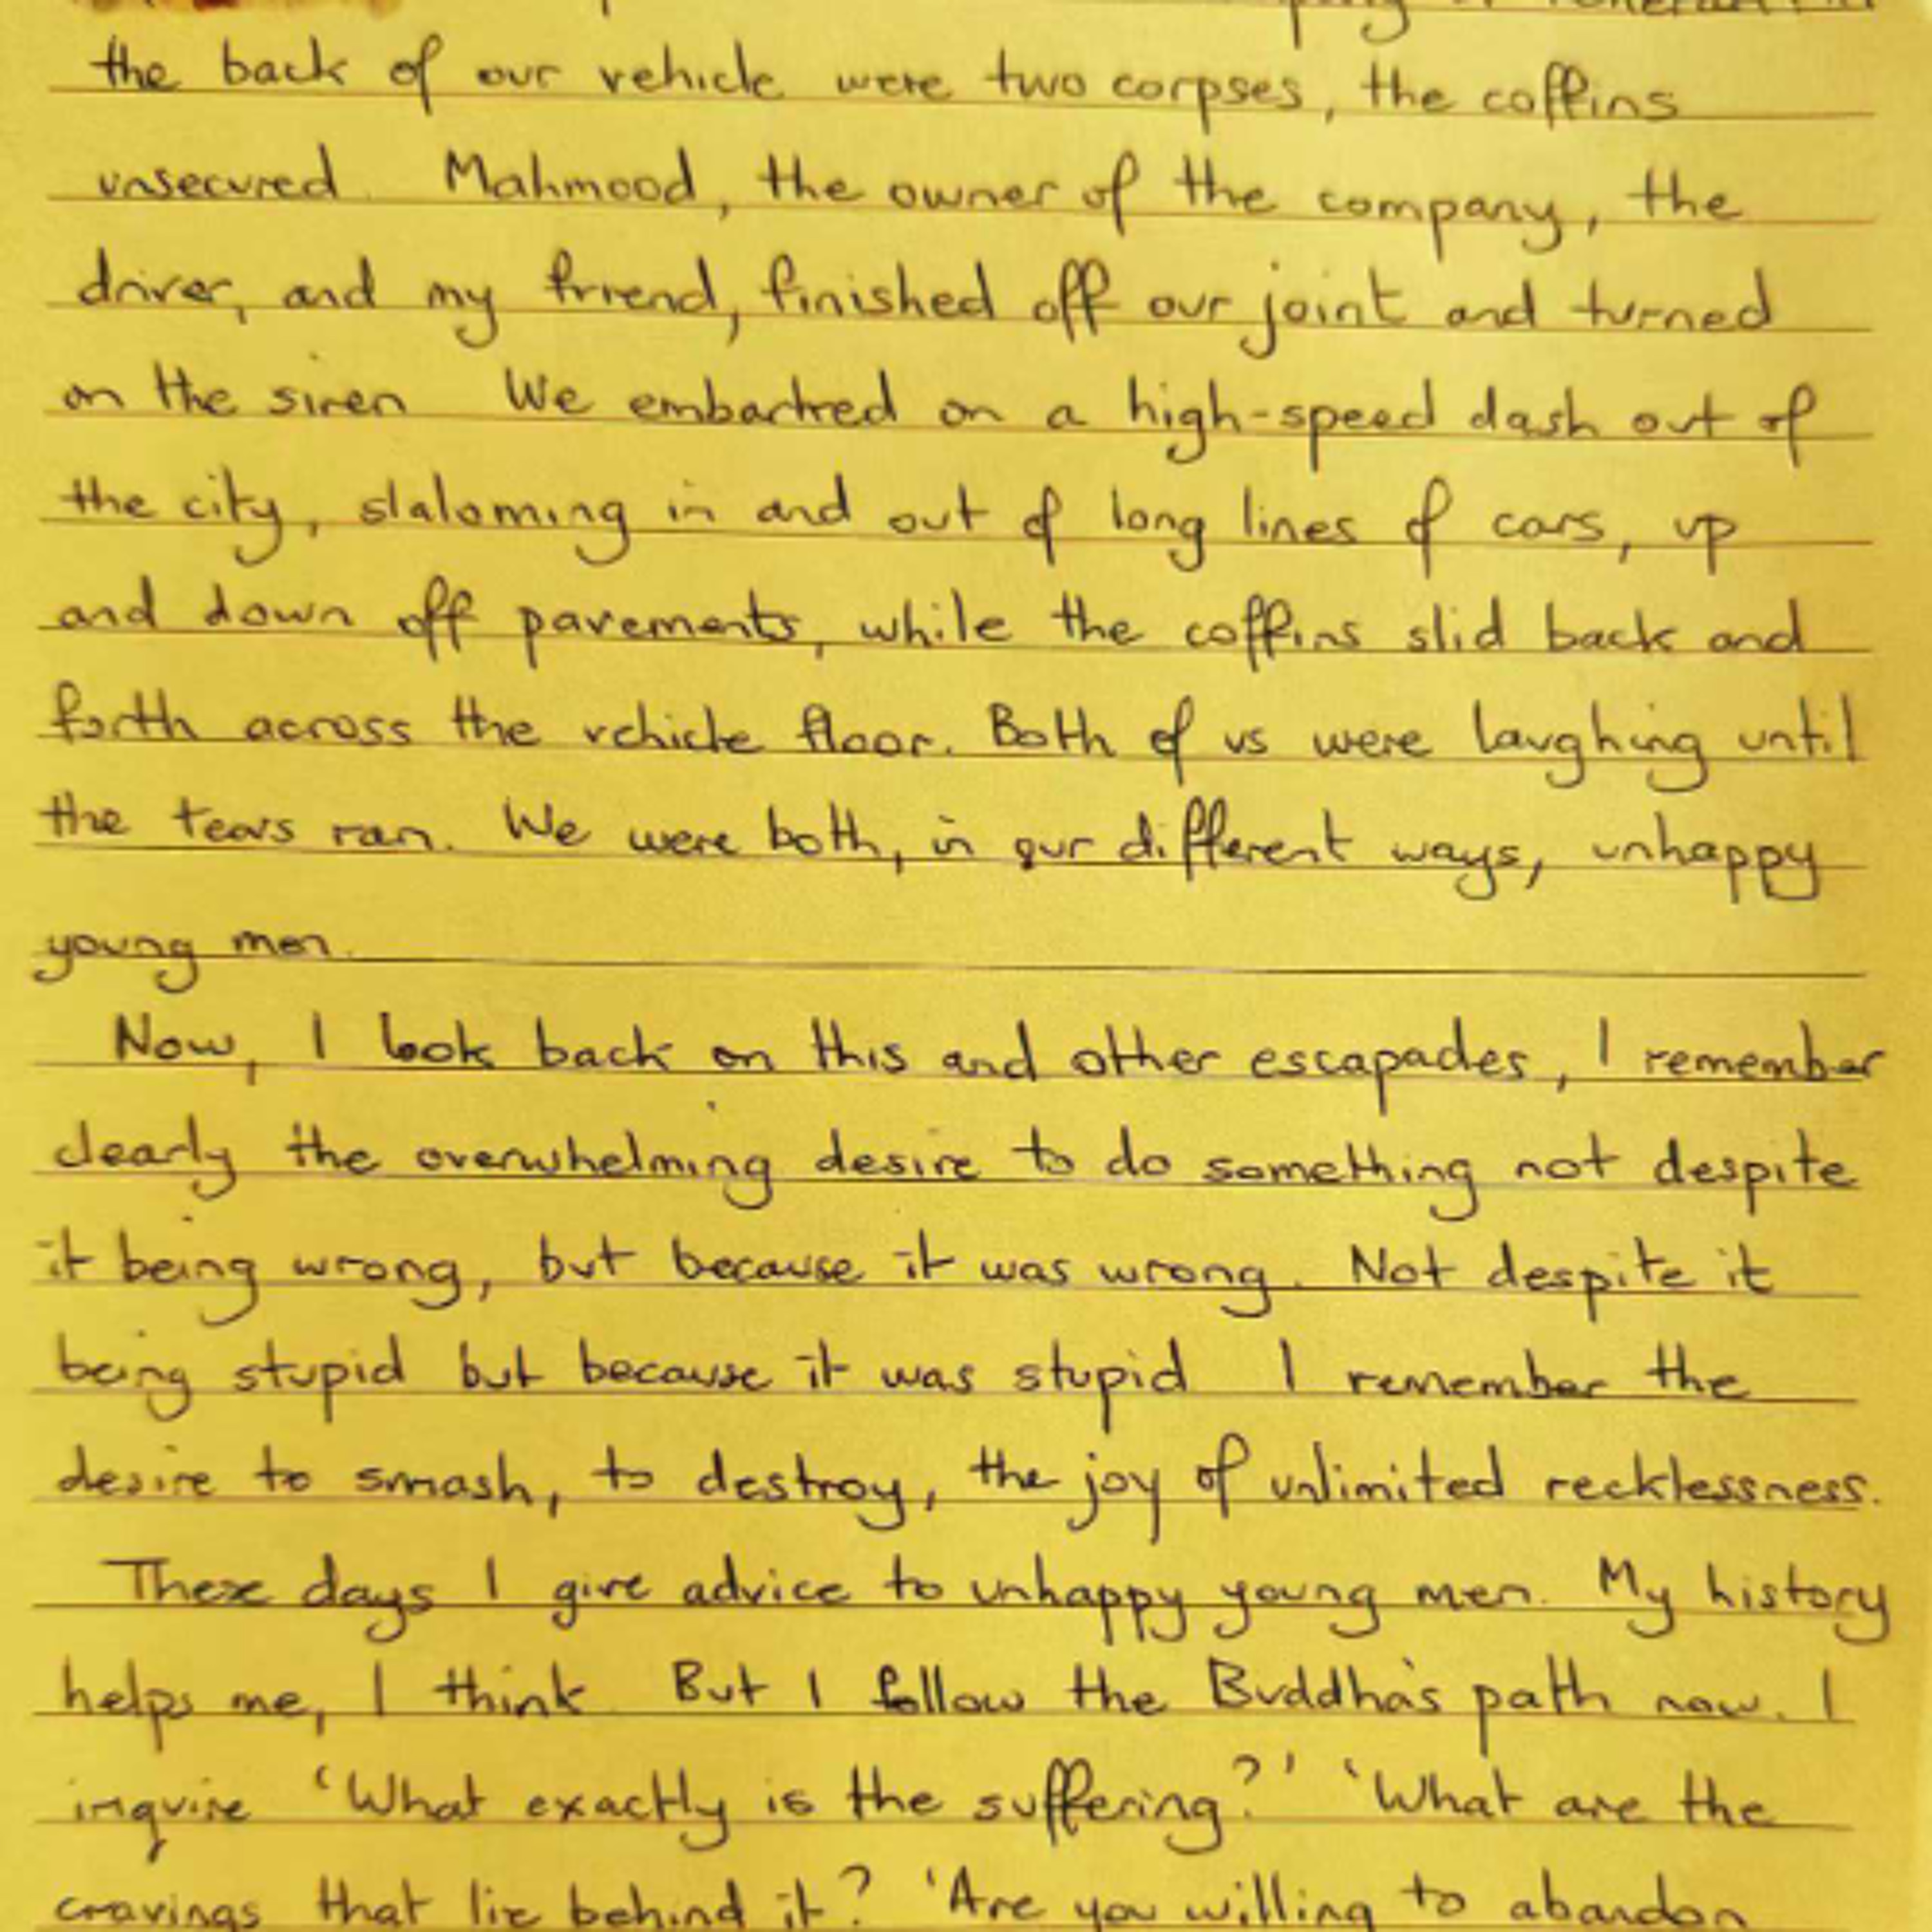 the back of our vehicle were two corpses, the coffins
unsecured. Mahmood, the owner of the company, the
driver, and my friend, finished off our joint and turned
on the siren We embarked on a high-speed dash out of
the city, slaloming in and out of long lines of cars, up
and down off pavements, while the coffins slid back and
forth across the vehicle floor. Both of us were laughing until
the tears ran. We were both, in our different ways, unhappy
young men.
Now, I look back on this and other escapades, I remember
clearly the overwhelming desire to do something not despite
it being wrong, but because it was wrong. Not despite it
being stupid but because it was stupid I remember the
desire to smash, to destroy, the joy of unlimited recklessness.
These days I give advice to unhappy young men. My history
helps me, I think. But I follow the Buddha's path now. I
inquire 'What exactly is the suffering?' 'What are the
cravings that lie behind it? 'Are you willing to abandon